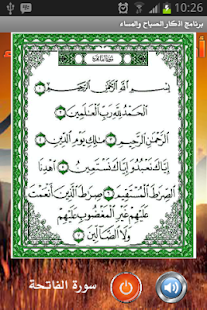 10:26
برنامج اذكار الصباح والمساء
بِسْمِ اللَّهِ الرَّحْمَٰنِ الرَّحِيمِ ١
الْحَمْدُ لِلَّهِ رَبِّ الْعَالَمِينَ ٢
الرَّحْمَٰنِ الرَّحِيمِ ٣ مَالِكِ يَوْمِ الدِّينِ ٤
إِيَّاكَ نَعْبُدُ وَإِيَّاكَ نَسْتَعِينُ ٥ اهْدِنَا
الصِّرَاطَ الْمُسْتَقِيمَ ٦ صِرَاطَ الَّذِينَ أَنْعَمْتَ
عَلَيْهِمْ غَيْرِ الْمَغْضُوبِ عَلَيْهِمْ
وَلَا الضَّالِّينَ ٧
سورة الفاتحة